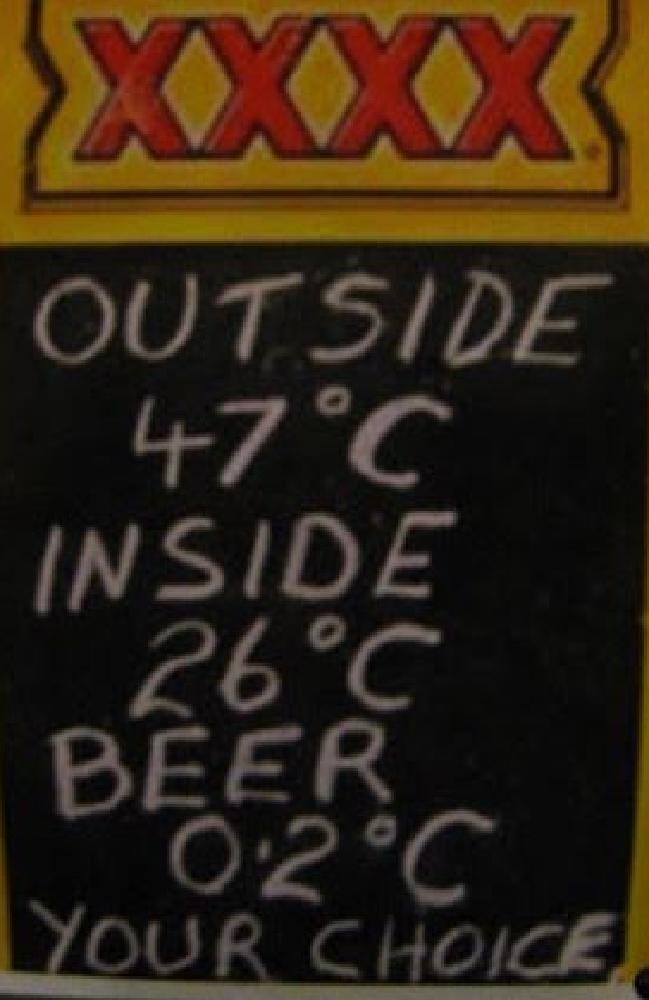 XXXX
OUTSIDE
47°C
INSIDE
26°C
BEER
0·2°C
YOUR CHOICE